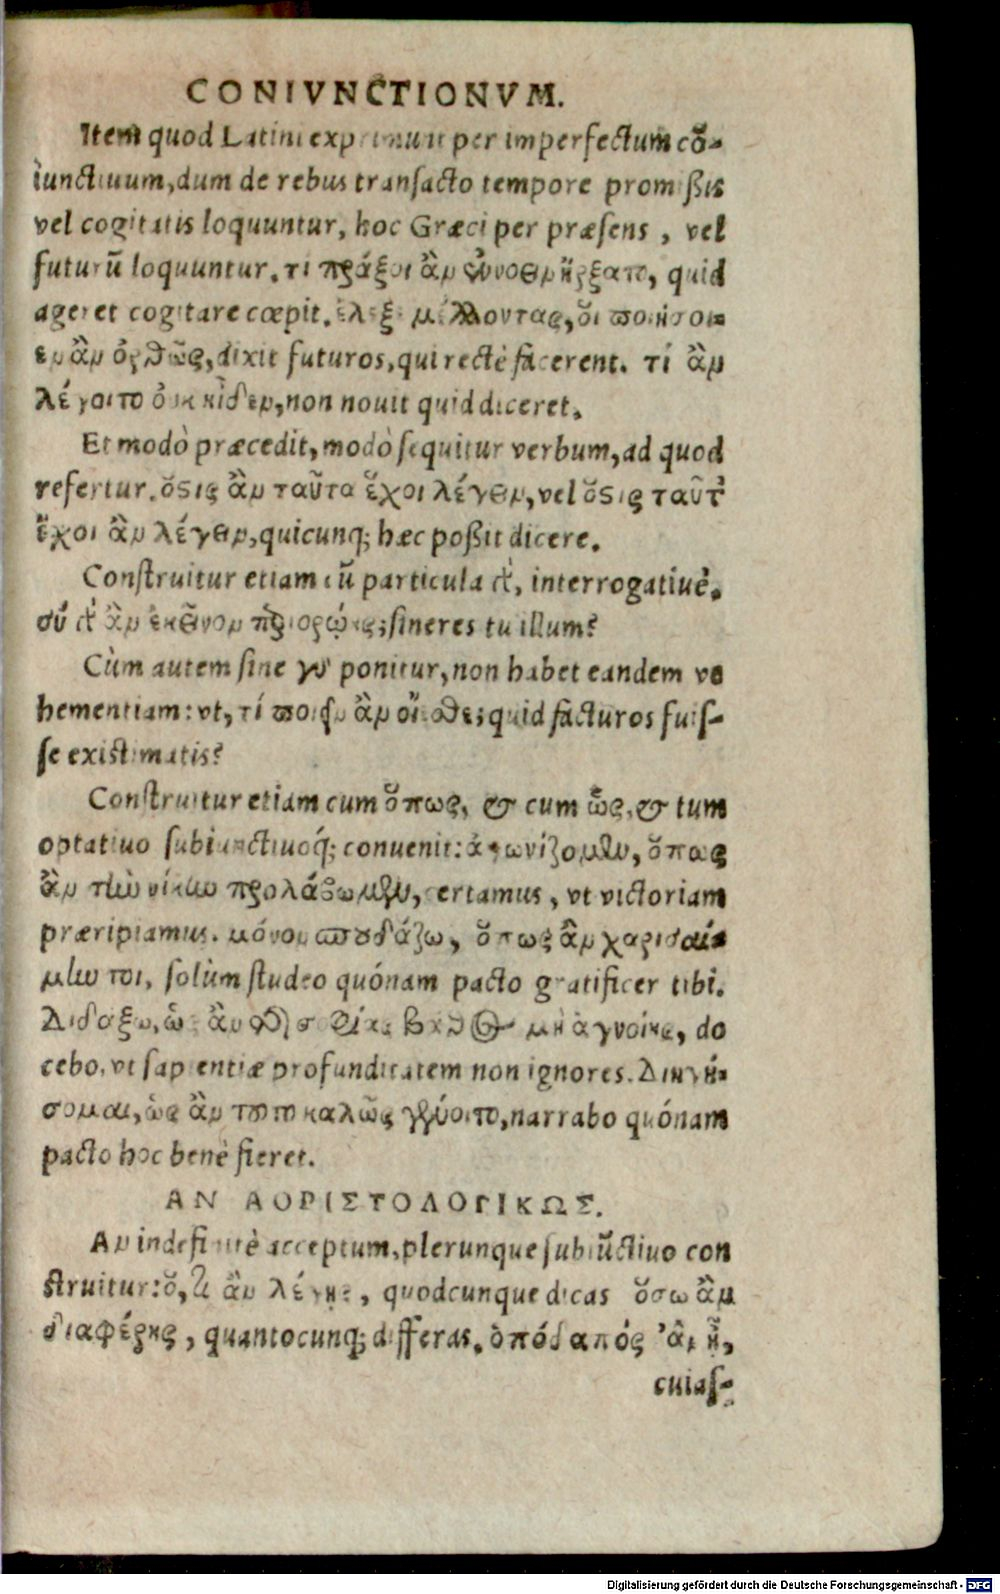 CONIVNCTIONVM.
Item quod Latini exprimunt per imperfectum cō-
iunctiuum, dum de rebus transacto tempore promißis
vel cogitatis loquuntur, hoc Græci per præsens, vel
futurũ loquuntur. τί πράξοι ἂν συννοεῖν ἤρξατο, quid
ageret cogitare cœpit. ἔλεξε μέλλοντας, οἳ ποιήσοι-
εν ἂν ὀρθῶς, dixit futuros, qui rectè facerent. τί ἂν
λέγοιτο οὐκ οἶδεν, non nouit quid diceret.
Et modò præcedit, modò sequitur verbum, ad quod
refertur. ὅστις ἂν ταῦτα ἔχοι λέγειν, vel ὅστις ταῦτ'
ἔχοι ἂν λέγειν, quicunq; hæc poßit dicere.
Construitur etiam cũ particula εἰ, interrogatiuè.
σύ εἰ ἂν ἐκεῖνον περιορῴης; sineres tu illum?
Cùm autem sine γε ponitur, non habet eandem ve
hementiam: vt, τί ποιεῖν ἂν οἴεσθε; quid facturos fuis-
se existimatis?
Construitur etiam cum ὅπως, & cum ὡς, & tum
optatiuo subiunctiuoq́; conuenit: ἀγωνίζομεν, ὅπως
ἂν τὴν νίκην προλάβωμεν, certamus, vt victoriam
præripiamus. μόνον σπουδάζω, ὅπως ἂν χαρισαί-
μην σοι, solùm studeo quónam pacto gratificer tibi.
Διδάξω, ὡς ἂν τῆς σοφίας βάθος μὴ ἀγνοίης, do
cebo, vt sapientiæ profunditatem non ignores. Διηγή-
σομαι, ὡς ἂν τοῦτο καλῶς γένοιτο, narrabo quónam
pacto hoc benè fieret.
ΑΝ ΑΟΡΙΣΤΟΛΟΓΙΚΩΣ.
Αν indefinitè acceptum, plerunque subiũctiuo con
struitur: ὅ, τι ἂν λέγῃς, quodcunque dicas ὅσῳ ἂν
διαφέρῃς, quantocunq; differas. ὁπόδαπός ἂν ᾖ,
cuias-
Digitalisierung gefördert durch die Deutsche Forschungsgemeinschaft - DFG